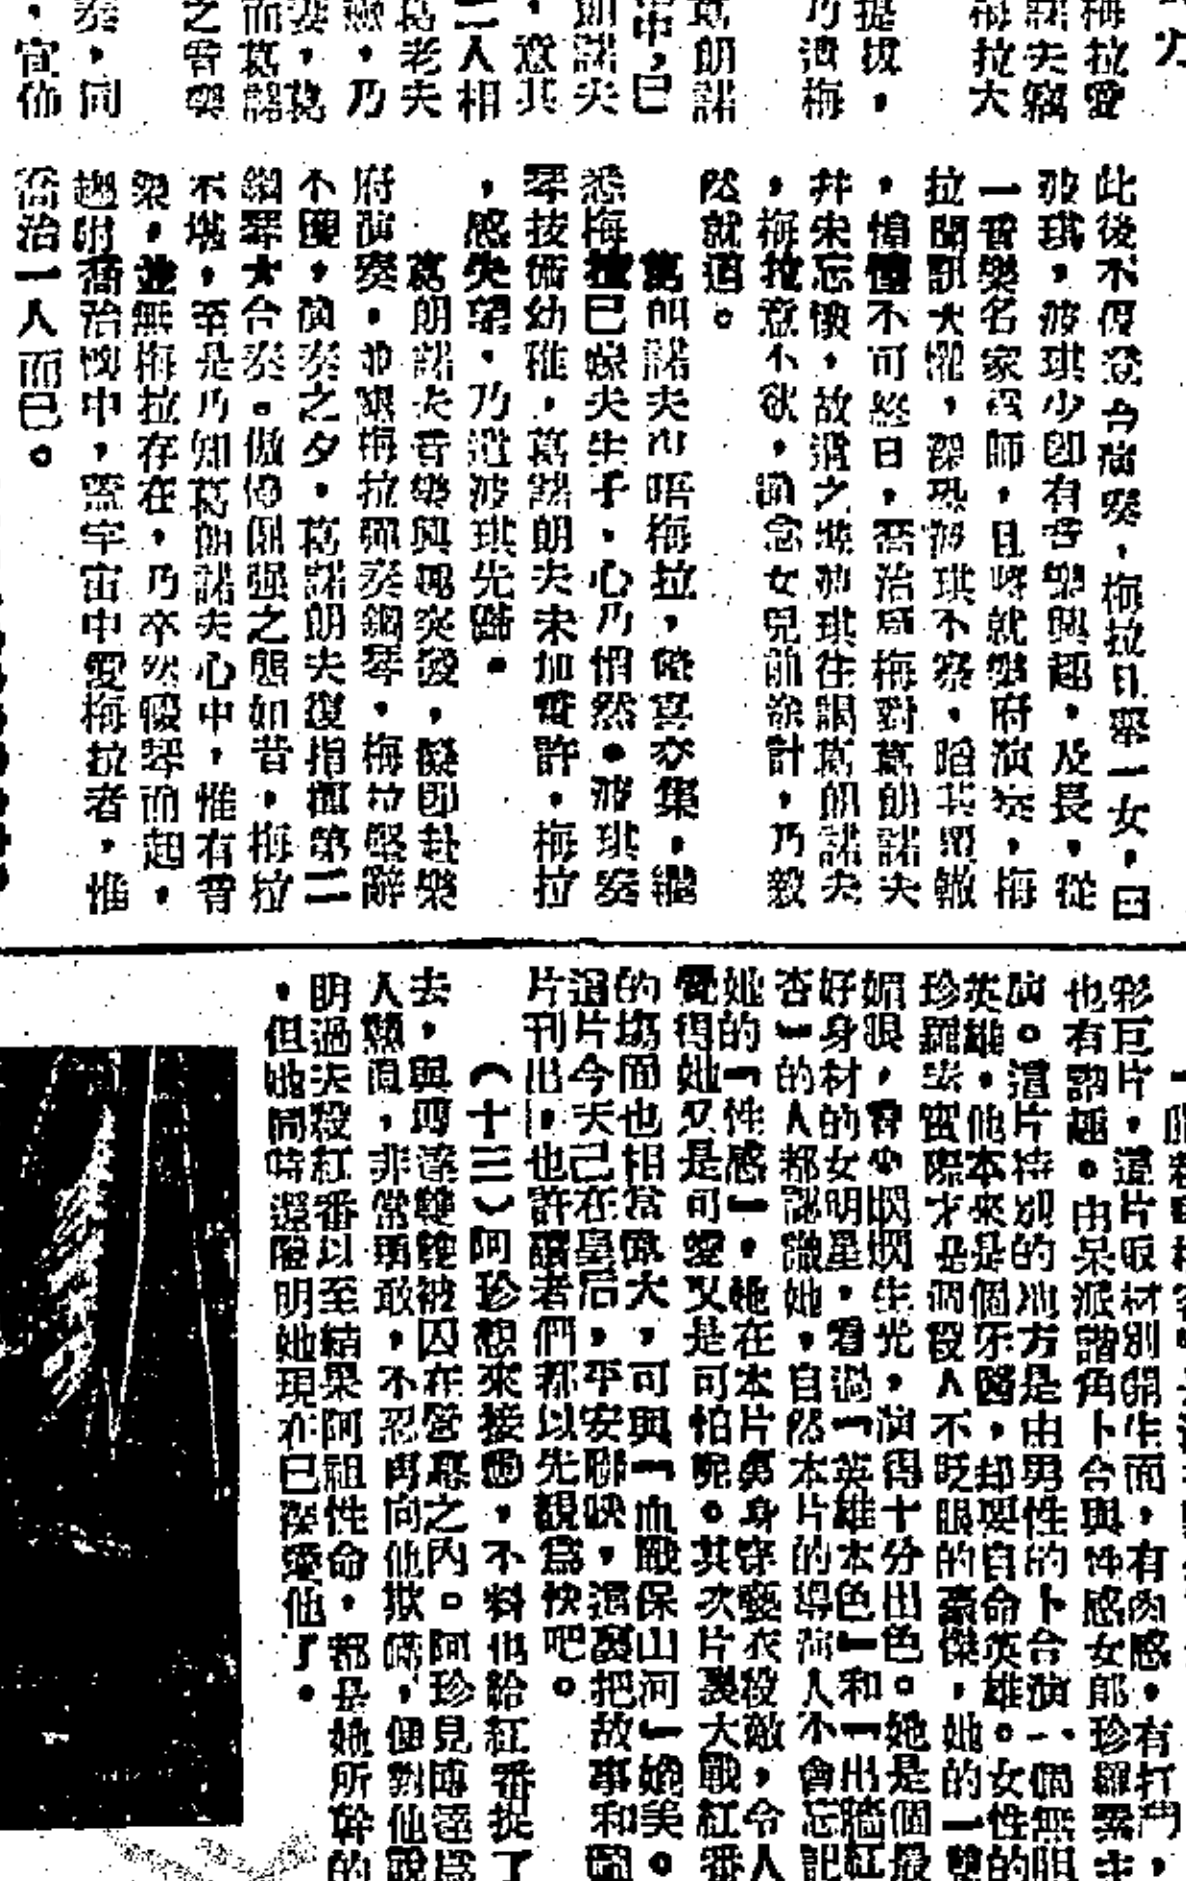 方
梅拉愛
諾夫竊
梅拉大
提拔，
乃遣梅
葛朗諾
中，已
朗諾夫
，意其
二人相
葛老夫
，乃
妻，葛
而葛諾
之音樂
奏，同
，宣佈
此後不復登台演奏，梅拉旦舉一女，曰
波琪，波琪少即有音樂興趣，及長，從
一音樂名家為師，且將就樂府演奏，梅
拉聞訊大懼，深恐波琪不察，蹈其覆轍
，惶懼不可終日，喬治為梅對葛朗諾夫
并未忘懷，故遣之攜波琪往謁葛朗諾夫
，梅拉意不欲，顧念女兒前途計，乃毅
然就道。
葛朗諾夫再晤梅拉，驚喜亦集，繼
悉梅拉已嫁夫生子，心乃惘然。波琪奏
琴技術幼稚，葛諾朗夫未加贊許，梅拉
，感失望，乃遣波琪先歸。
葛朗諾夫音樂興趣突發，擬即赴樂
府演奏，並邀梅拉彈奏鋼琴，梅拉堅辭
不獲，演奏之夕，葛諾朗夫復指揮第二
鋼琴大合奏。傲慢倔强之態如昔，梅拉
不堪，至是乃知葛朗諾夫心中，惟有音
樂，並無梅拉存在，乃卒然輟琴而起，
趨附喬治懷中，蓋宇宙中愛梅拉者，惟
喬治一人而已。
彩巨片，這片取材別開生面，有肉感，有打鬥，
也有諧趣。由呆派諧角卜合與性感女郎珍羅素主
演。這片特別的地方是由男性的卜合演一個無胆
英雄，他本來是個牙醫，却要自命英雄。女性的
珍羅素實際才是個殺人不眨眼的豪傑，她的一雙
媚眼，會也閃閃生光，演得十分出色。她是個最
好身材的女明星，看過「英雄本色」和「出牆紅
杏」的人都認識她，自然本片的導演人不會忘記
她的「性感」，她在本片身穿褻衣殺敵，令人
覺得她又是可愛又是可怕呢。其次片裏大戰紅番
的塲面也相當偉大，可與「血戰保山河」媲美。
這片今天己在皇后，平安聯映，這裏把故事和圖
片刊出，也許讀者們都以先覩爲快吧。
（十三）阿珍想來接應，不料也給紅番捉了
去，與博達雙雙被囚在營幕之內。阿珍見博達爲
人戇直，非常勇敢，不忍再向他欺瞞，便對他說
明過去殺紅番以至結果阿祖性命，都是她所幹的
，但她同時還聲明她現在已深愛他了。